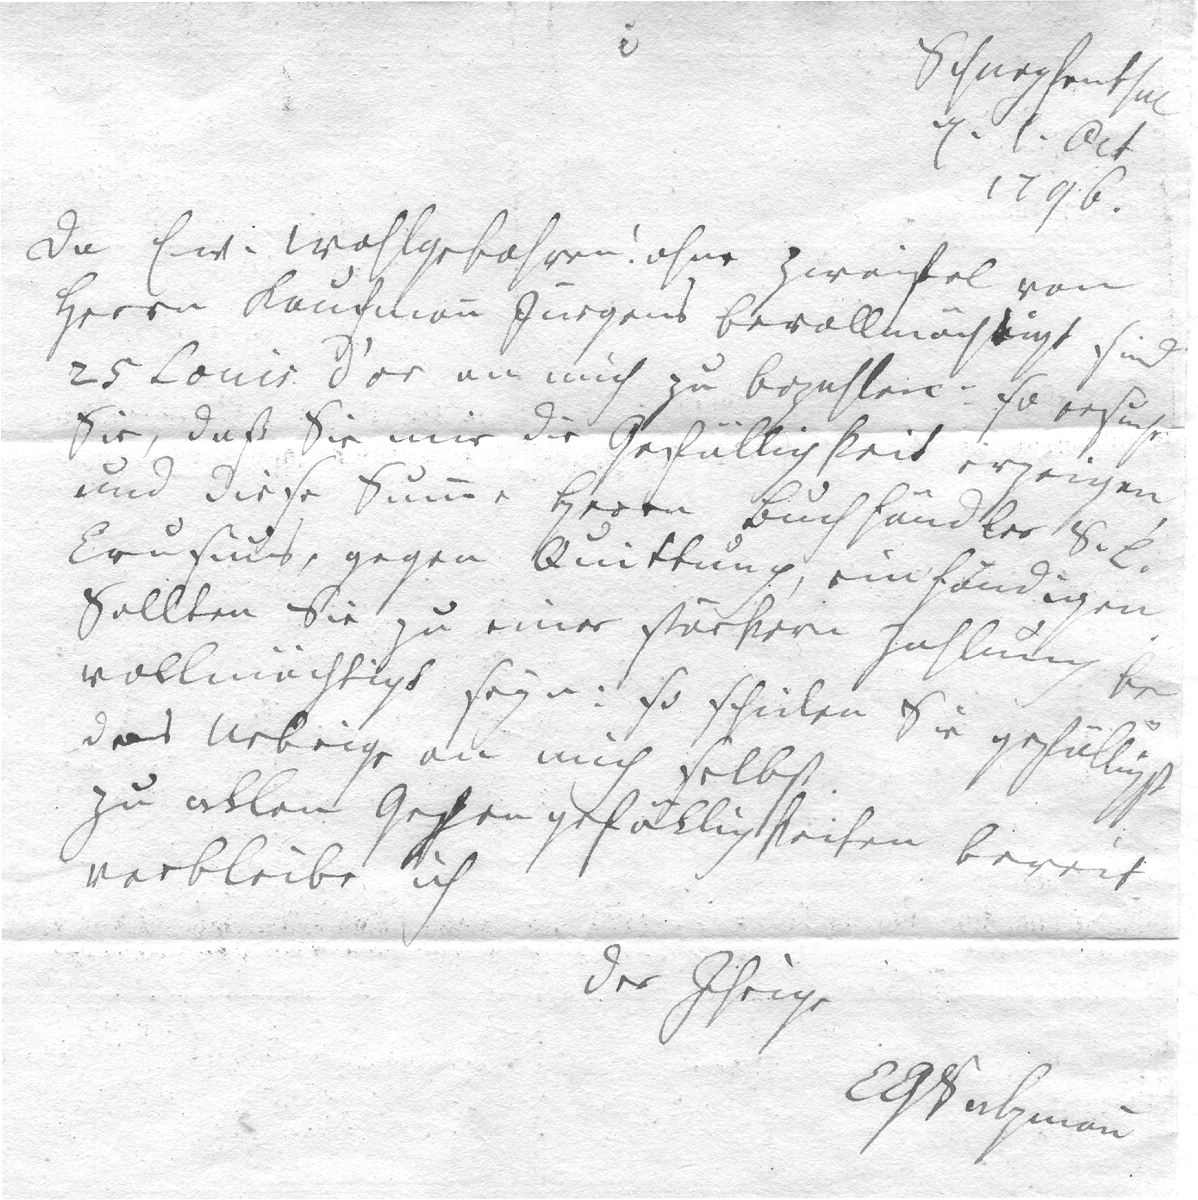 Schnepfenthal
d. 1. Oct
1796.
Da Ew. Wohlgebohren ohne Zweifel von
Herrn Kaufmann Jürgens bevollmächtigt sind
25 Louis d'or an mich zu bezahlen: so ersuche
Sie, daß Sie mir die Gefälligkeit erzeigen,
und diese Summe Herrn Buchhändler S. L.
Crusius, gegen Quittung, einhändigen.
Sollten Sie zu einer stärkern Zahlung be
vollmächtigt seyn: so schicken Sie gefälligst
das Uebrige an mich selbst.
Zu allen Gegengefälligkeiten bereit
verbleibe ich
der Ihrige
CGSalzmann